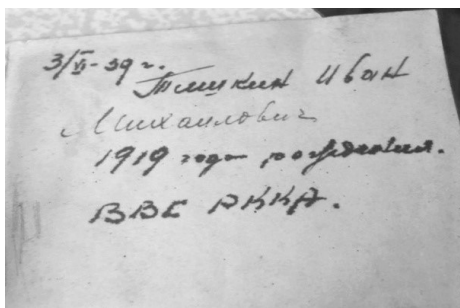 3/VI-39 г.
Тишкин Иван
Михайлович
1919 года рождения.
ВВС РККА.